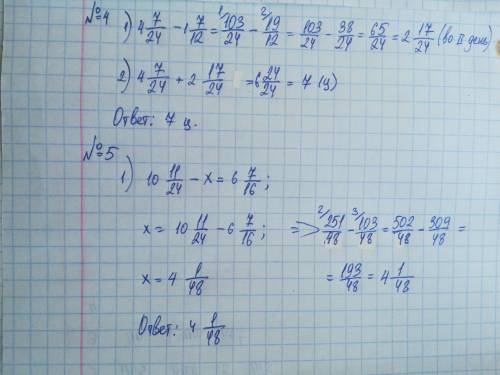 №4
1) 4 7/24 - 1 7/12 = 103/24 - 19/12 = 103/24 - 38/24 = 65/24 = 2 17/24 (во II день)
2) 4 7/24 + 2 17/24 = 6 24/24 = 7 (ц)
Ответ: 7 ц.
№5
1) 10 11/24 - x = 6 7/16;
x = 10 11/24 - 6 7/16; => 2/ 251/48 - 3/ 103/48 = 502/48 - 309/48 =
x = 4 1/48 = 193/48 = 4 1/48
Ответ: 4 1/48